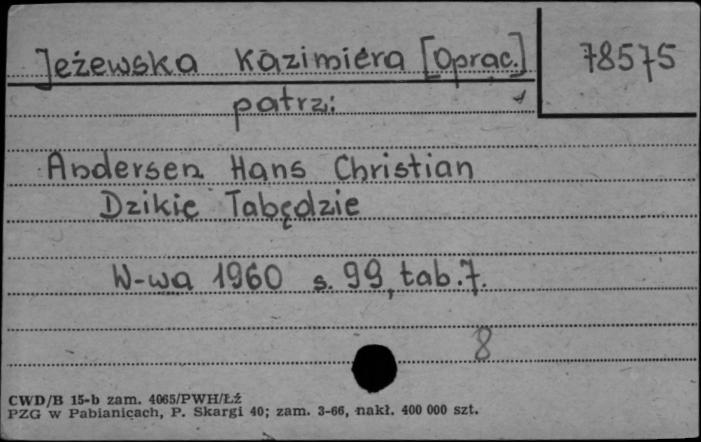 Jeżewska Kazimiera [oprac.] 78575
patrz:
Andersen Hans Christian
Dzikie Łabędzie
W-wa 1960 s. 99, tab. 7.
8
CWD/B 15-b zam. 4065/PWH/Łź
PZG w Pabianicach, P. Skargi 40; zam. 3-66, nakł. 400 000 szt.